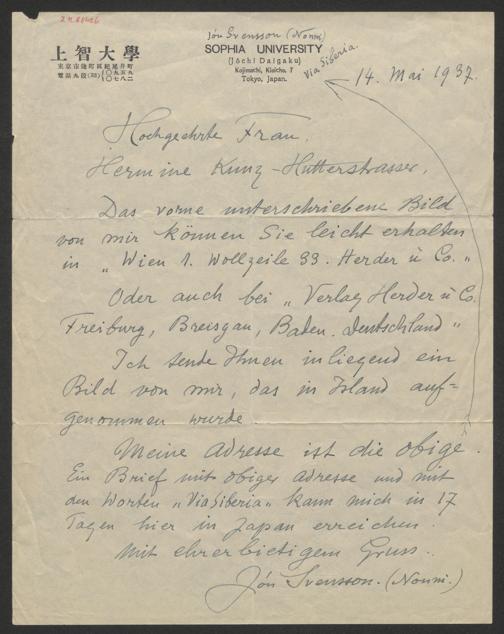 Jón Svensson (Nonni)
上智大學
SOPHIA UNIVERSITY
(Jôchi Daigaku)
Kojimachi, Kioicho, 7
Tokyo, Japan.
東京市麹町區紀尾井町
電話九段(33)
Via Siberia.
14. Mai 1937.
Hochgeehrte Frau
Hermine Kunz-Hutterstrasser,
Das vorne unterschriebene Bild
von mir können Sie leicht erhalten
in „Wien 1. Wollzeile 33. Herder u Co."
Oder auch bei „Verlag Herder u Co.
Freiburg, Breisgau, Baden. Deutschland"
Ich sende Ihnen inliegend ein
Bild von mir, das in Island auf=
genommen wurde.
Meine Adresse ist die obige.
Ein Brief mit obiger Adresse und mit
den Worten „Via Siberia" kann mich in 17
Tagen hier in Japan erreichen.
Mit ehrerbietigem Gruss.
Jón Svensson. (Nonni.)